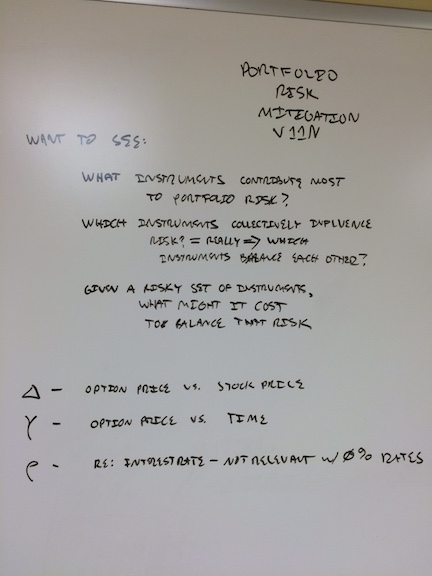 PORTFOLIO
RISK
MITIGATION
V11N
WANT TO SEE:
WHAT INSTRUMENTS CONTRIBUTE MOST
TO PORTFOLIO RISK?
WHICH INSTRUMENTS COLLECTIVELY INFLUENCE
RISK? = REALLY => WHICH
INSTRUMENTS BALANCE EACH OTHER?
GIVEN A RISKY SET OF INSTRUMENTS,
WHAT MIGHT IT COST
TO BALANCE THAT RISK
Δ - OPTION PRICE VS. STOCK PRICE
γ - OPTION PRICE VS. TIME
ρ - RE: INTEREST RATE - NOT RELEVANT W/ 0% RATES